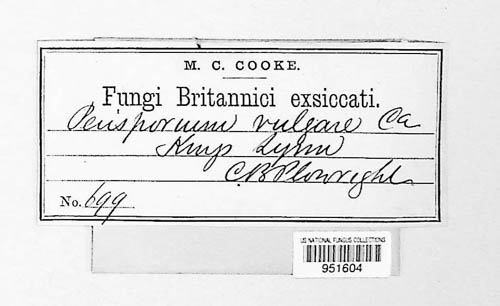 M. C. COOKE.
Fungi Britannici exsiccati.
Perisporium vulgare Ca
Kings Lynn
C.B. Plowright
No. 699
US NATIONAL FUNGUS COLLECTIONS
951604